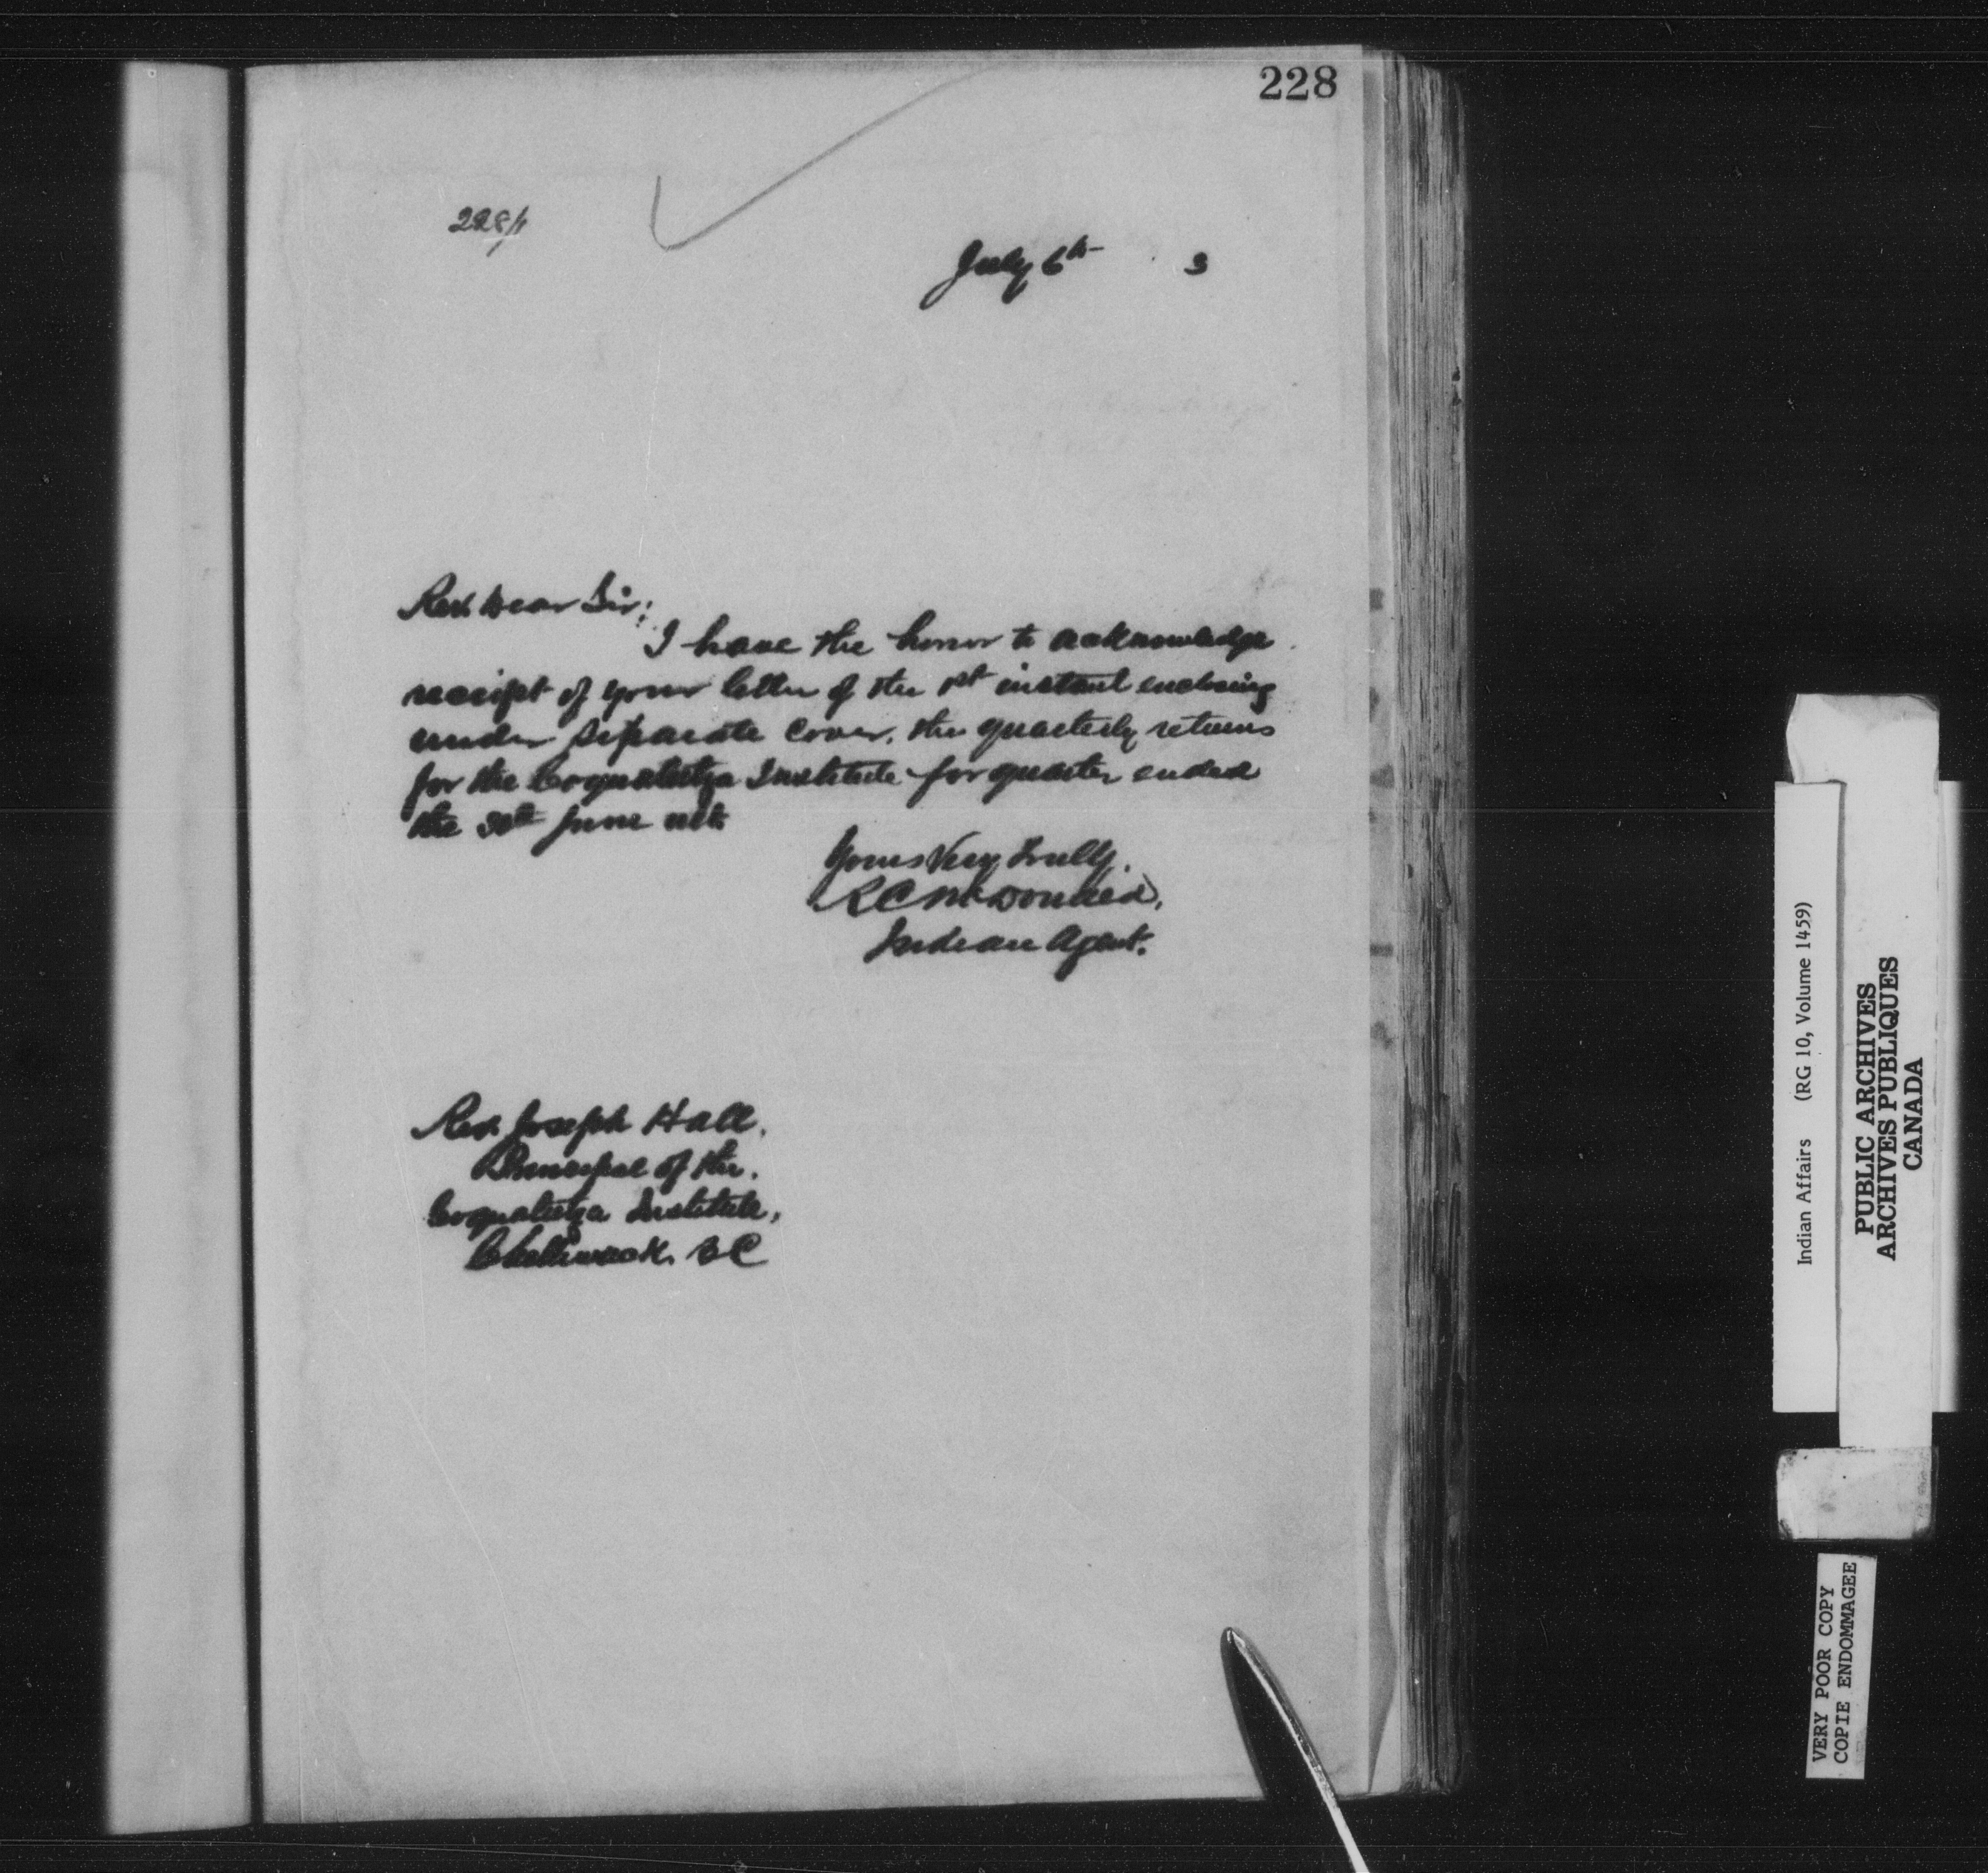 228
228/1
July 6th 3
Rev. Dear Sir;
I have the honor to acknowledge
receipt of your letter of the 1st instant enclosing
under separate cover, the quarterly returns
for the Coqualeetza Institute for quarter ended
the 30th June ult.
Yours Very Truly,
R C McDonald,
Indian Agent.
Rev. Joseph Hall,
Principal of the
Coqualeetza Institute,
Chilliwack. BC
Indian Affairs (RG 10, Volume 1459)
PUBLIC ARCHIVES
ARCHIVES PUBLIQUES
CANADA
VERY POOR COPY
COPIE ENDOMMAGEE